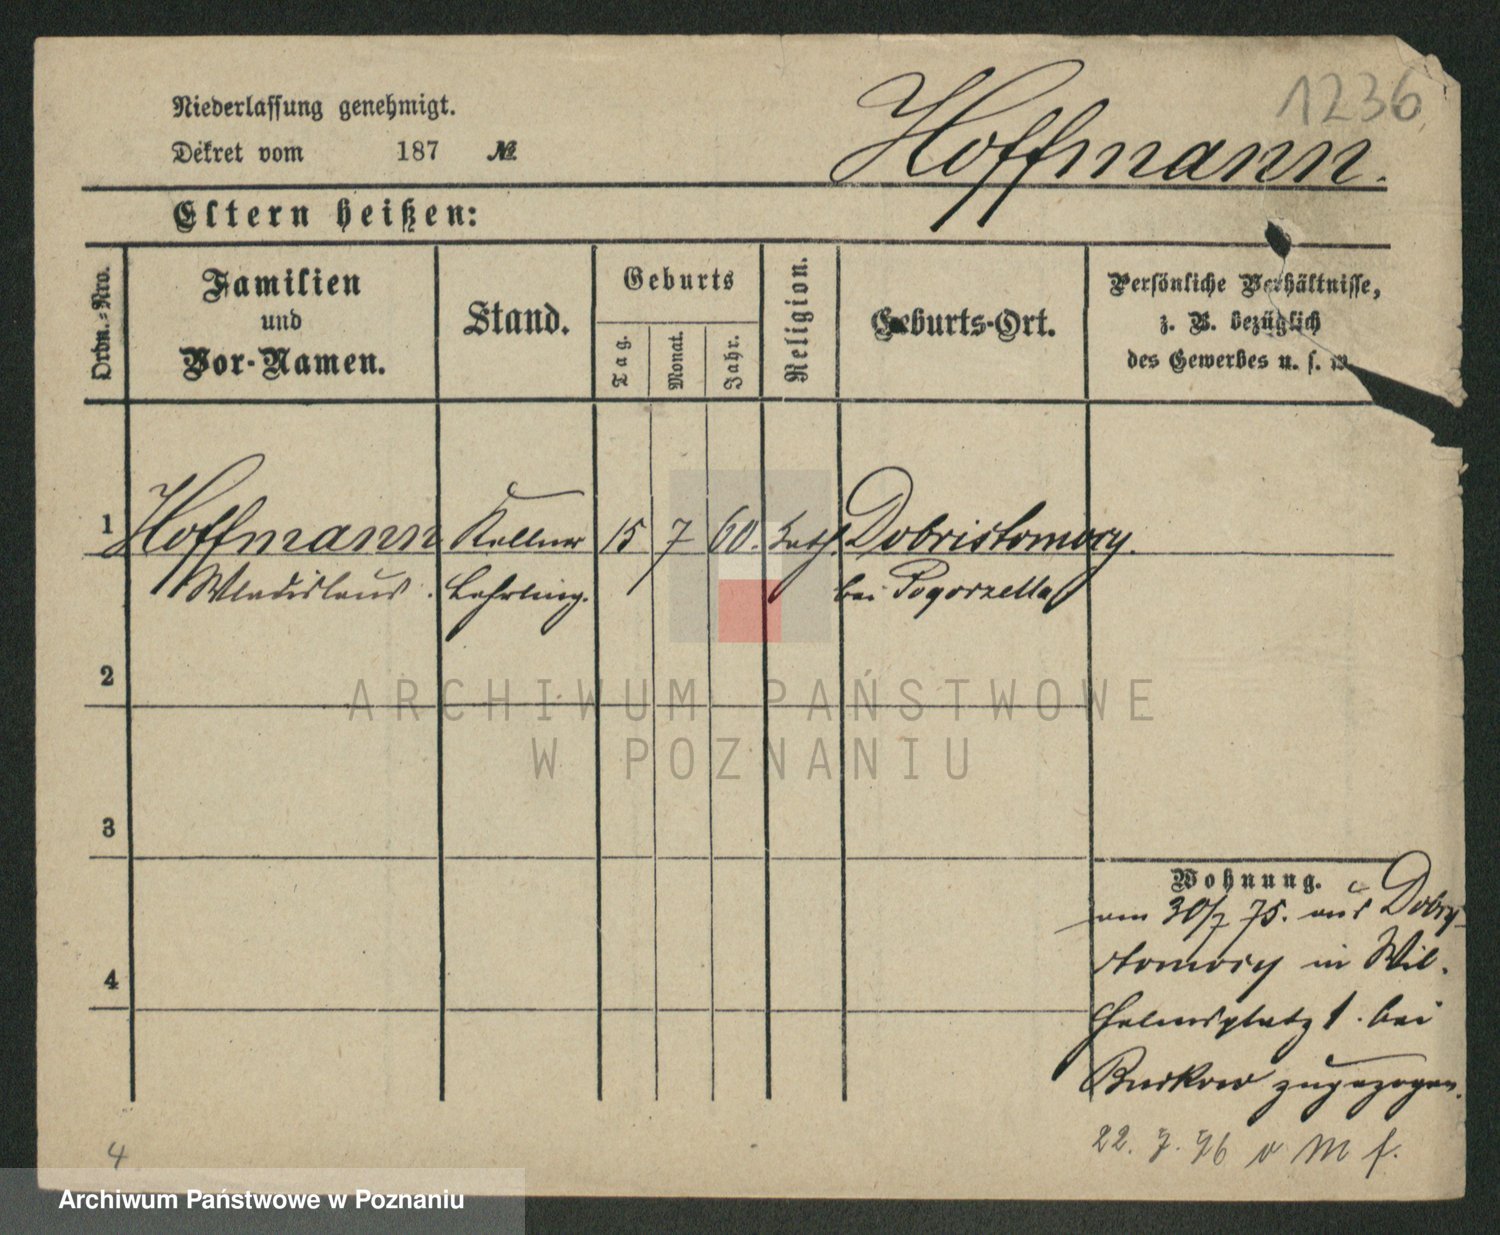 1236
Niederlassung genehmigt.
Dekret vom 187 №
Hoffmann.
Eltern heißen:
Ordn.-Nro.
Familien
und
Vor-Namen.
Stand.
Geburts
Tag.
Monat.
Jahr.
Religion.
Geburts-Ort.
Persönliche Verhältnisse,
z. B. bezüglich
des Gewerbes u. s. w.
1 Hoffmann Kellner 15 7 60. kath. Dobristomocy.
Wladislaus. Lehrling. bei Pogorzella
2
3
4
Wohnung.
am 30/7 75. aus Dobry-
stomocy in Wil-
helmsplatz 1. bei
zugezogen.
22. 7. 76 v M f.
4
ARCHIWUM PAŃSTWOWE
W POZNANIU
Archiwum Państwowe w Poznaniu